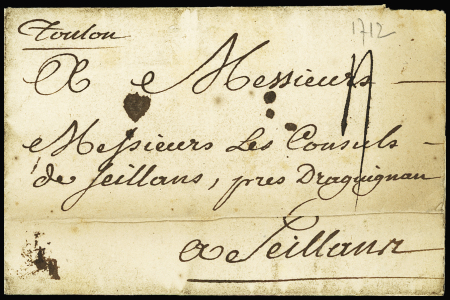 Toulon
1712
A Messieurs
Messieurs Les Consuls
de Seillans, pres Draguignan
a Seillans